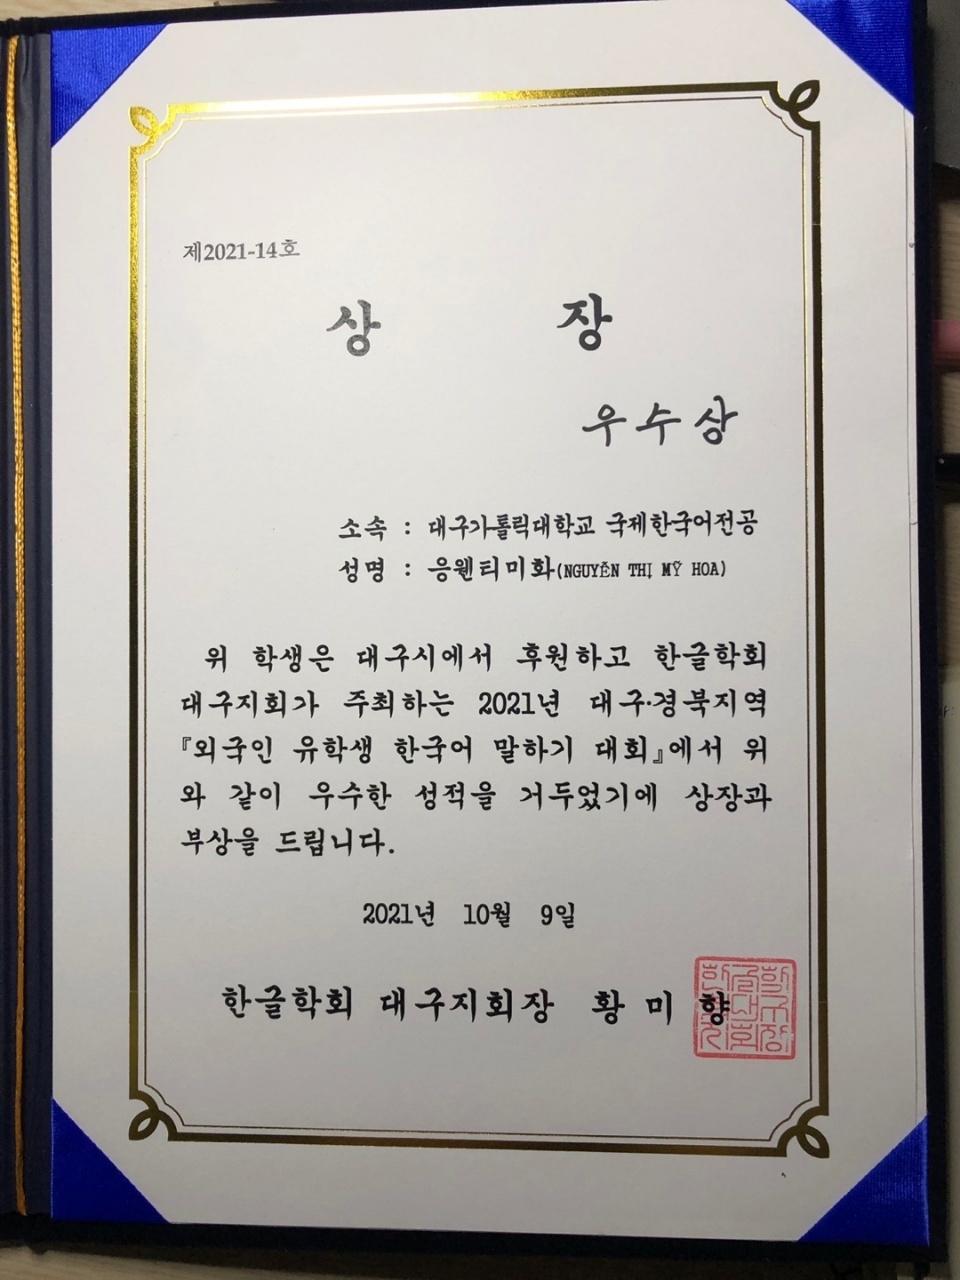 제2021-14호
상 장
우수상
소속 : 대구가톨릭대학교 국제한국어전공
성명 : 응웬티미화(NGUYỄN THỊ MỸ HOA)
위 학생은 대구시에서 후원하고 한글학회
대구지회가 주최하는 2021년 대구·경북지역
『외국인 유학생 한국어 말하기 대회』에서 위
와 같이 우수한 성적을 거두었기에 상장과
부상을 드립니다.
2021년 10월 9일
한글학회 대구지회장 황 미 향